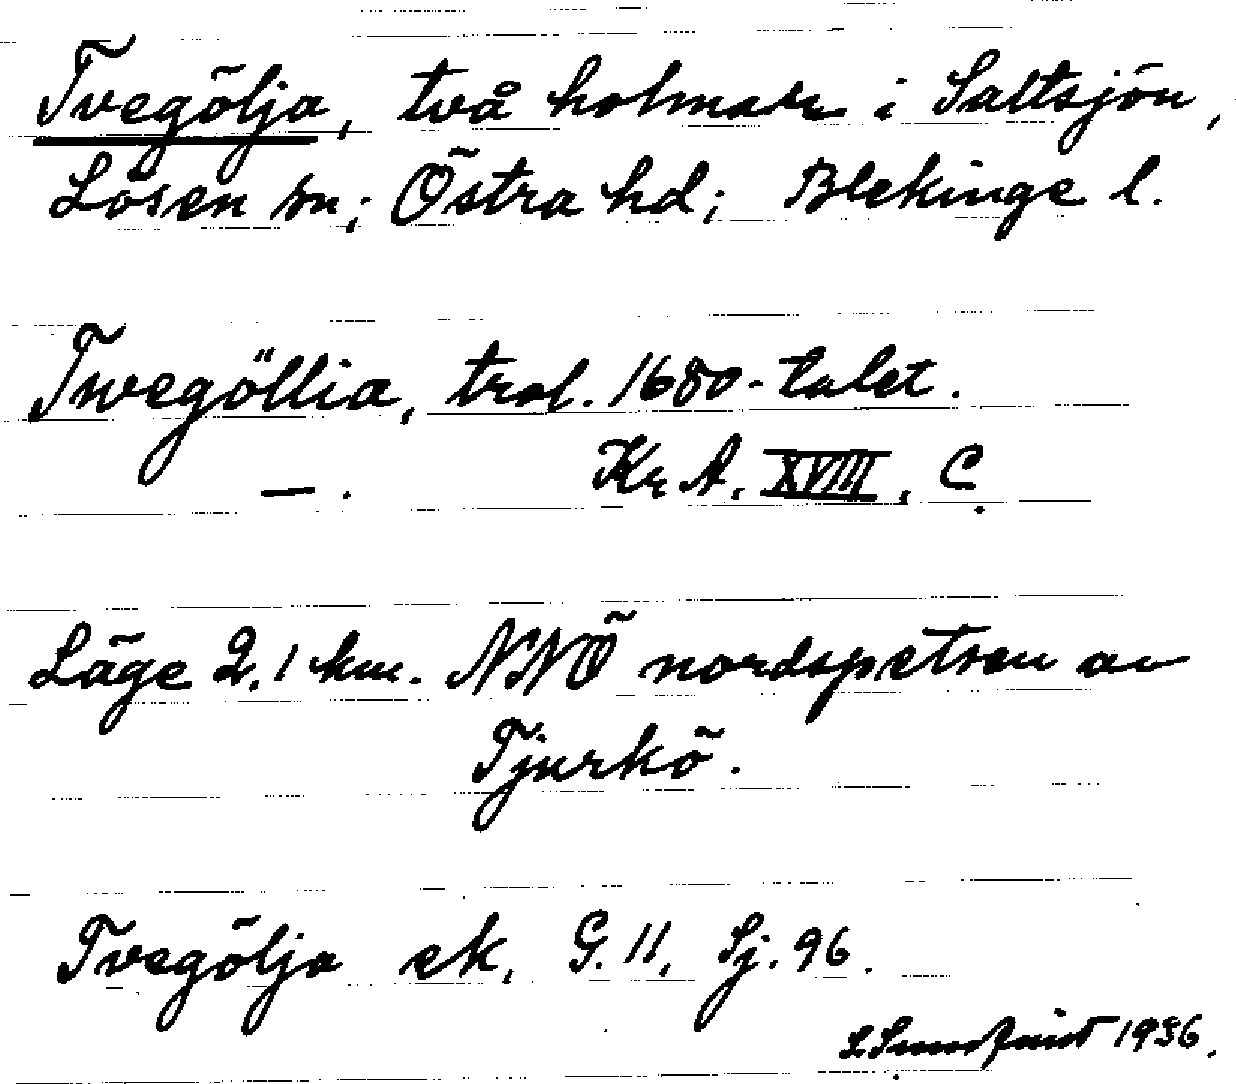 Tvegölja, två holmar i Saltsjön,
Lösen sn; Östra hd; Blekinge l.
Twegöllia, trol. 1680-talet.
—. Kr A. XVIII, C.
Läge 2,1 km. NNÖ nordspetsen av
Tjurkö.
Tvegölja ek, G. 11, Sj. 96.
1936.